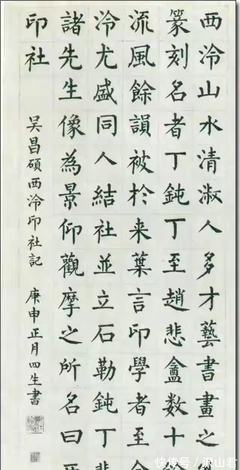 西泠山水清淑人多才藝書畫之
篆刻名者丁鈍丁至趙悲盦数十
流風餘韻被於来葉言印學者至
泠尤盛同人結社並立石勒鈍丁悲
諸先生像為景仰觀摩之所名曰
印社
吴昌碩西泠印社記 庚申正月四生書